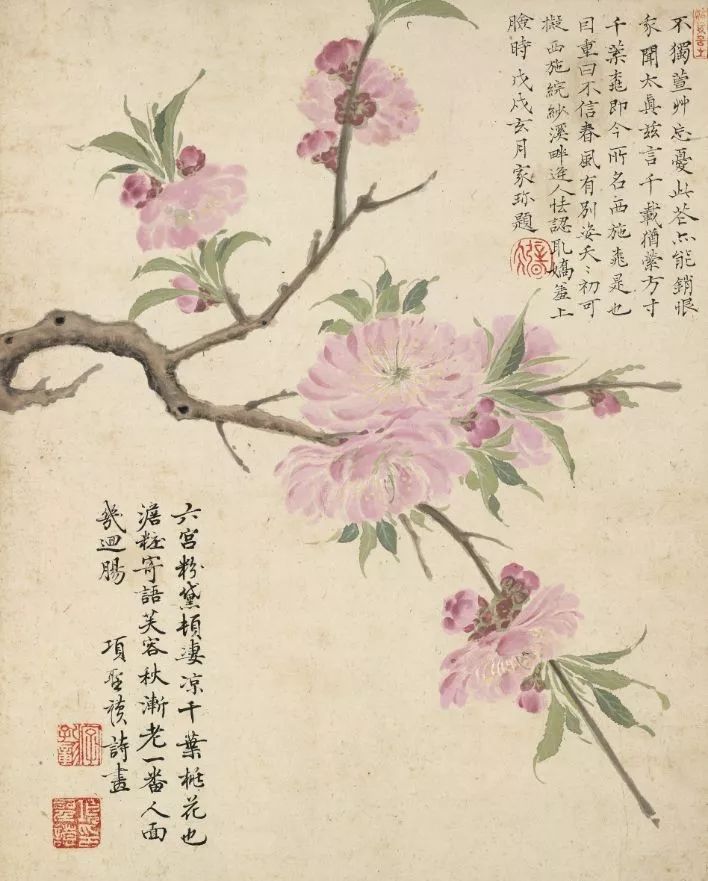 不獨萱艸忘憂此花亦能銷恨
家聞太真茲言千載猶縈方寸
千葉桃即今所名西施桃是也
因重曰不信春風有別姿夭〻初可
擬西施浣紗溪畔逢人怯認取嬌羞上
臉時戊戌玄月家珎題
六宮粉黛頓凄凉千葉桃花也
澹粧寄語芙容秋漸老一番人面
幾迴腸
項聖謨詩畫